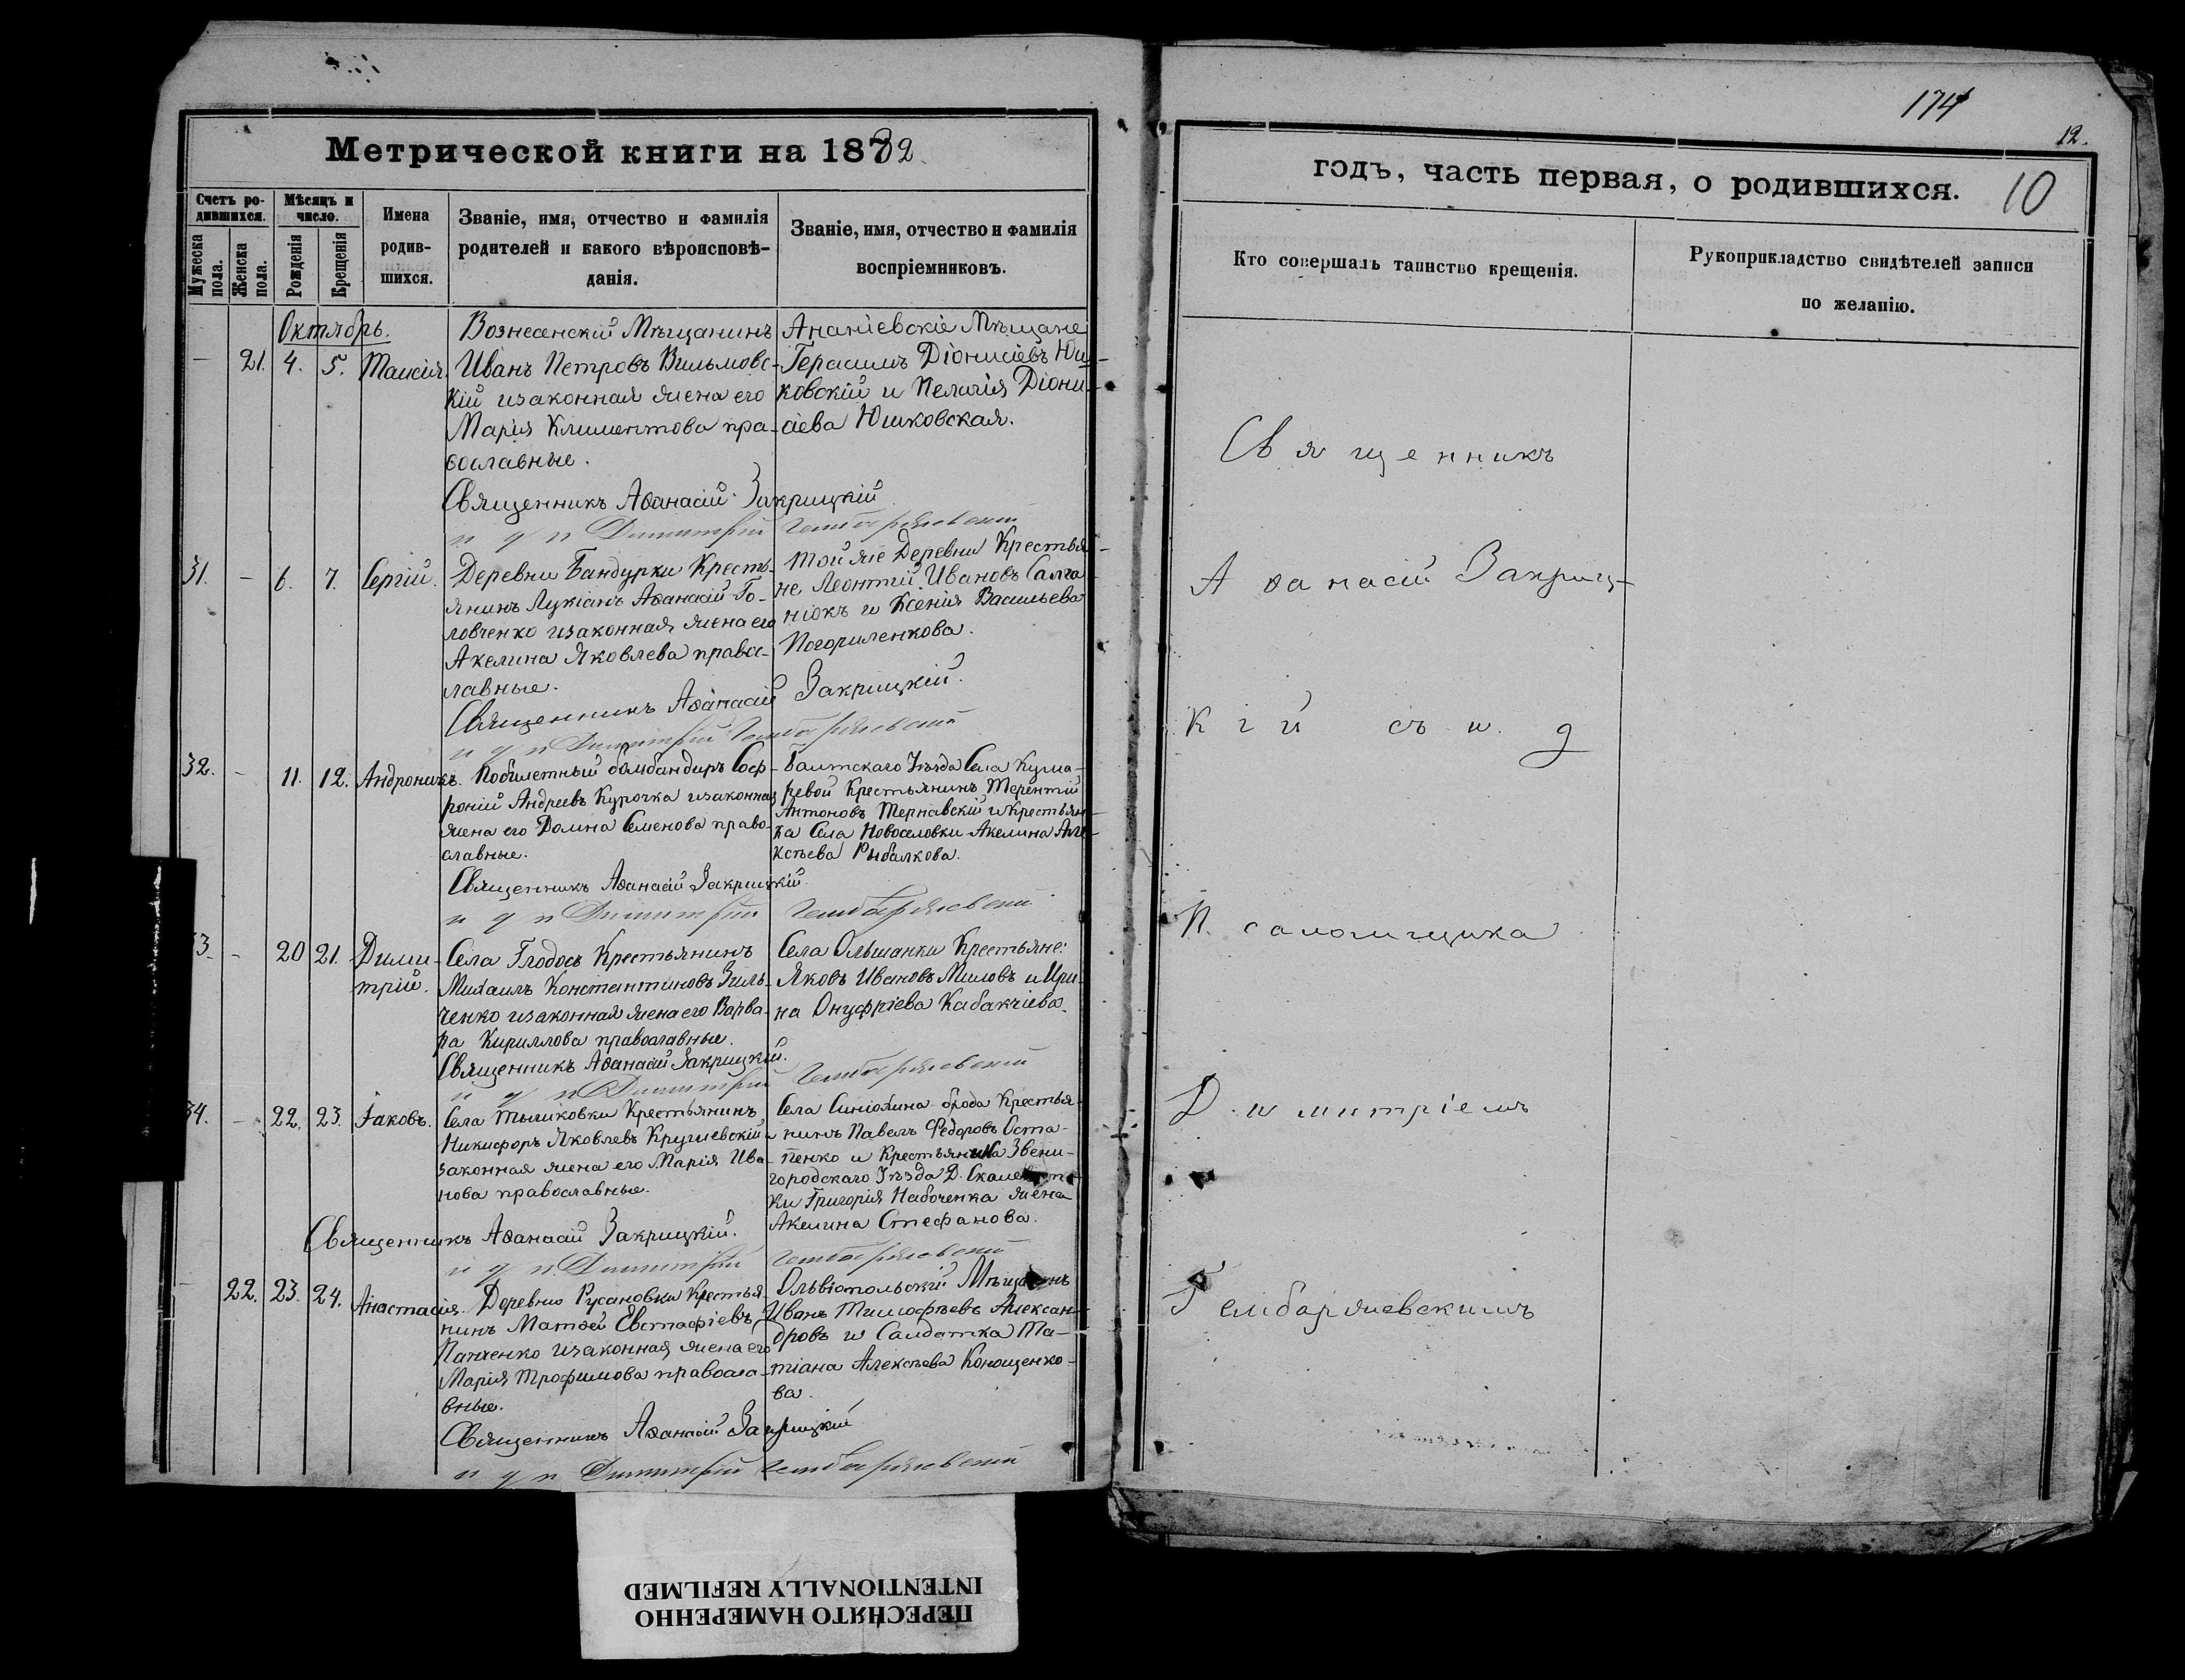 174
12.
10
Метрической книги на 1882
годъ, часть первая, о родившихся.
Счетъ ро-
дившихся.
Мужеска пола.
Женска пола.
Мѣсяцъ и
число.
Рожденія
Крещенія
Имена
родив-
шихся.
Званіе, имя, отчество и фамилія
родителей и какого вѣроисповѣ-
данія.
Званіе, имя, отчество и фамилія
воспріемниковъ.
Кто совершалъ таинство крещенія.
Рукоприкладство свидѣтелей записи
по желанію.
Октябрь.
— 21. 4. 5. Таисія.
Вознесенскій Мѣщанинъ
Иванъ Петровъ Вильмовс-
кій изаконная жена его
Марія Климентова пра-
вославные.
Ананіевскіе Мѣщане
Герасимъ Діонисіевъ Юш-
ковскій и Пелагія Діони-
сіева Юшковская.
Священникъ Аѳанасій Закрицкій
и д п Димитрій Гембаржевскій
31. — 6. 7. Сергій.
Деревни Бандурки Кресть-
янинъ Лукіанъ Аѳанасій Го-
ловченко изаконная жена его
Акелина Яковлева правос-
лавные.
Той же Деревни Крестья-
не Леонтій Ивановъ Салга-
нюкъ и Ксенія Васильева
Погориленкова.
Священникъ Аѳанасій Закрицкій.
и д п Димитрій Гембаржевскій
32. - 11. 12. Андроникъ.
Побилетный бомбандиръ Соф-
роній Андреевъ Курочка изаконная
жена его Домна Семенова право-
славные.
Балтскаго Уѣзда Села Кума-
ревой Крестьянинъ Терентій
Антоновъ Тернавскій и Крестьян-
ка Села Новоселовки Акелина Але-
ксѣева Рыбалкова.
Священникъ Аѳанасій Закрицкій
и д п Димитрій Гембаржевскій
33. - 20 21. Дими-
трій.
Села Глодосъ Крестьянинъ
Михаилъ Константиновъ Зиль-
ченко изаконная жена его Варва-
ра Кириллова православные.
Села Ольшанки Крестьяне:
Яковъ Ивановъ Миловъ и Ири-
на Онуфріева Кабакчіева.
Священникъ Аѳанасій Закрицкій.
и д п Димитрій Гембаржевскій
34. - 22. 23. Іаковъ.
Села Тышковки Крестьянинъ
Никифоръ Яковлевъ Крушевскій и
законная жена его Марія Ива-
нова православные.
Села Синюхина брода Крестья-
нинъ Павелъ Федоровъ Оста-
пенко и Крестьянина Звени-
городскаго Уѣзда Д.
ки Григорія Набоченка жена
Акелина Стефанова.
Священникъ Аѳанасій Закрицкій.
и д п. Димитрій Гембаржевскій
- 22. 23. 24. Анастасія.
Деревни Русановки Крестья-
нинъ Матѳей Евстафіевъ
Панченко изаконная жена его
Марія Трофимова правосла-
вные.
Ольвіопольскій Мѣщанинъ
Иванъ Тимофѣевъ Алексан-
дровъ и Салдатка Та-
тіана Алексѣева Конощенко-
ва.
Священникъ Аѳанасій Закрицкій
и д п Димитрій Гембаржевскій
Священникъ
Аѳанасій Закриц-
кій съ и. д
Псаломщика
Димитріемъ
Гембаржевскимъ
ПЕРЕСНЯТО НАМЕРЕННО
INTENTIONALLY REFILMED